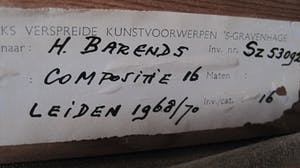 KS VERSPREIDE KUNSTVOORWERPEN 'S-GRAVENHAGE
naar : H. BARENDS Inv. nr. SZ 53092
: COMPOSITIE 16 Maten :
: LEIDEN 1968/70 Inv./cat. : 16